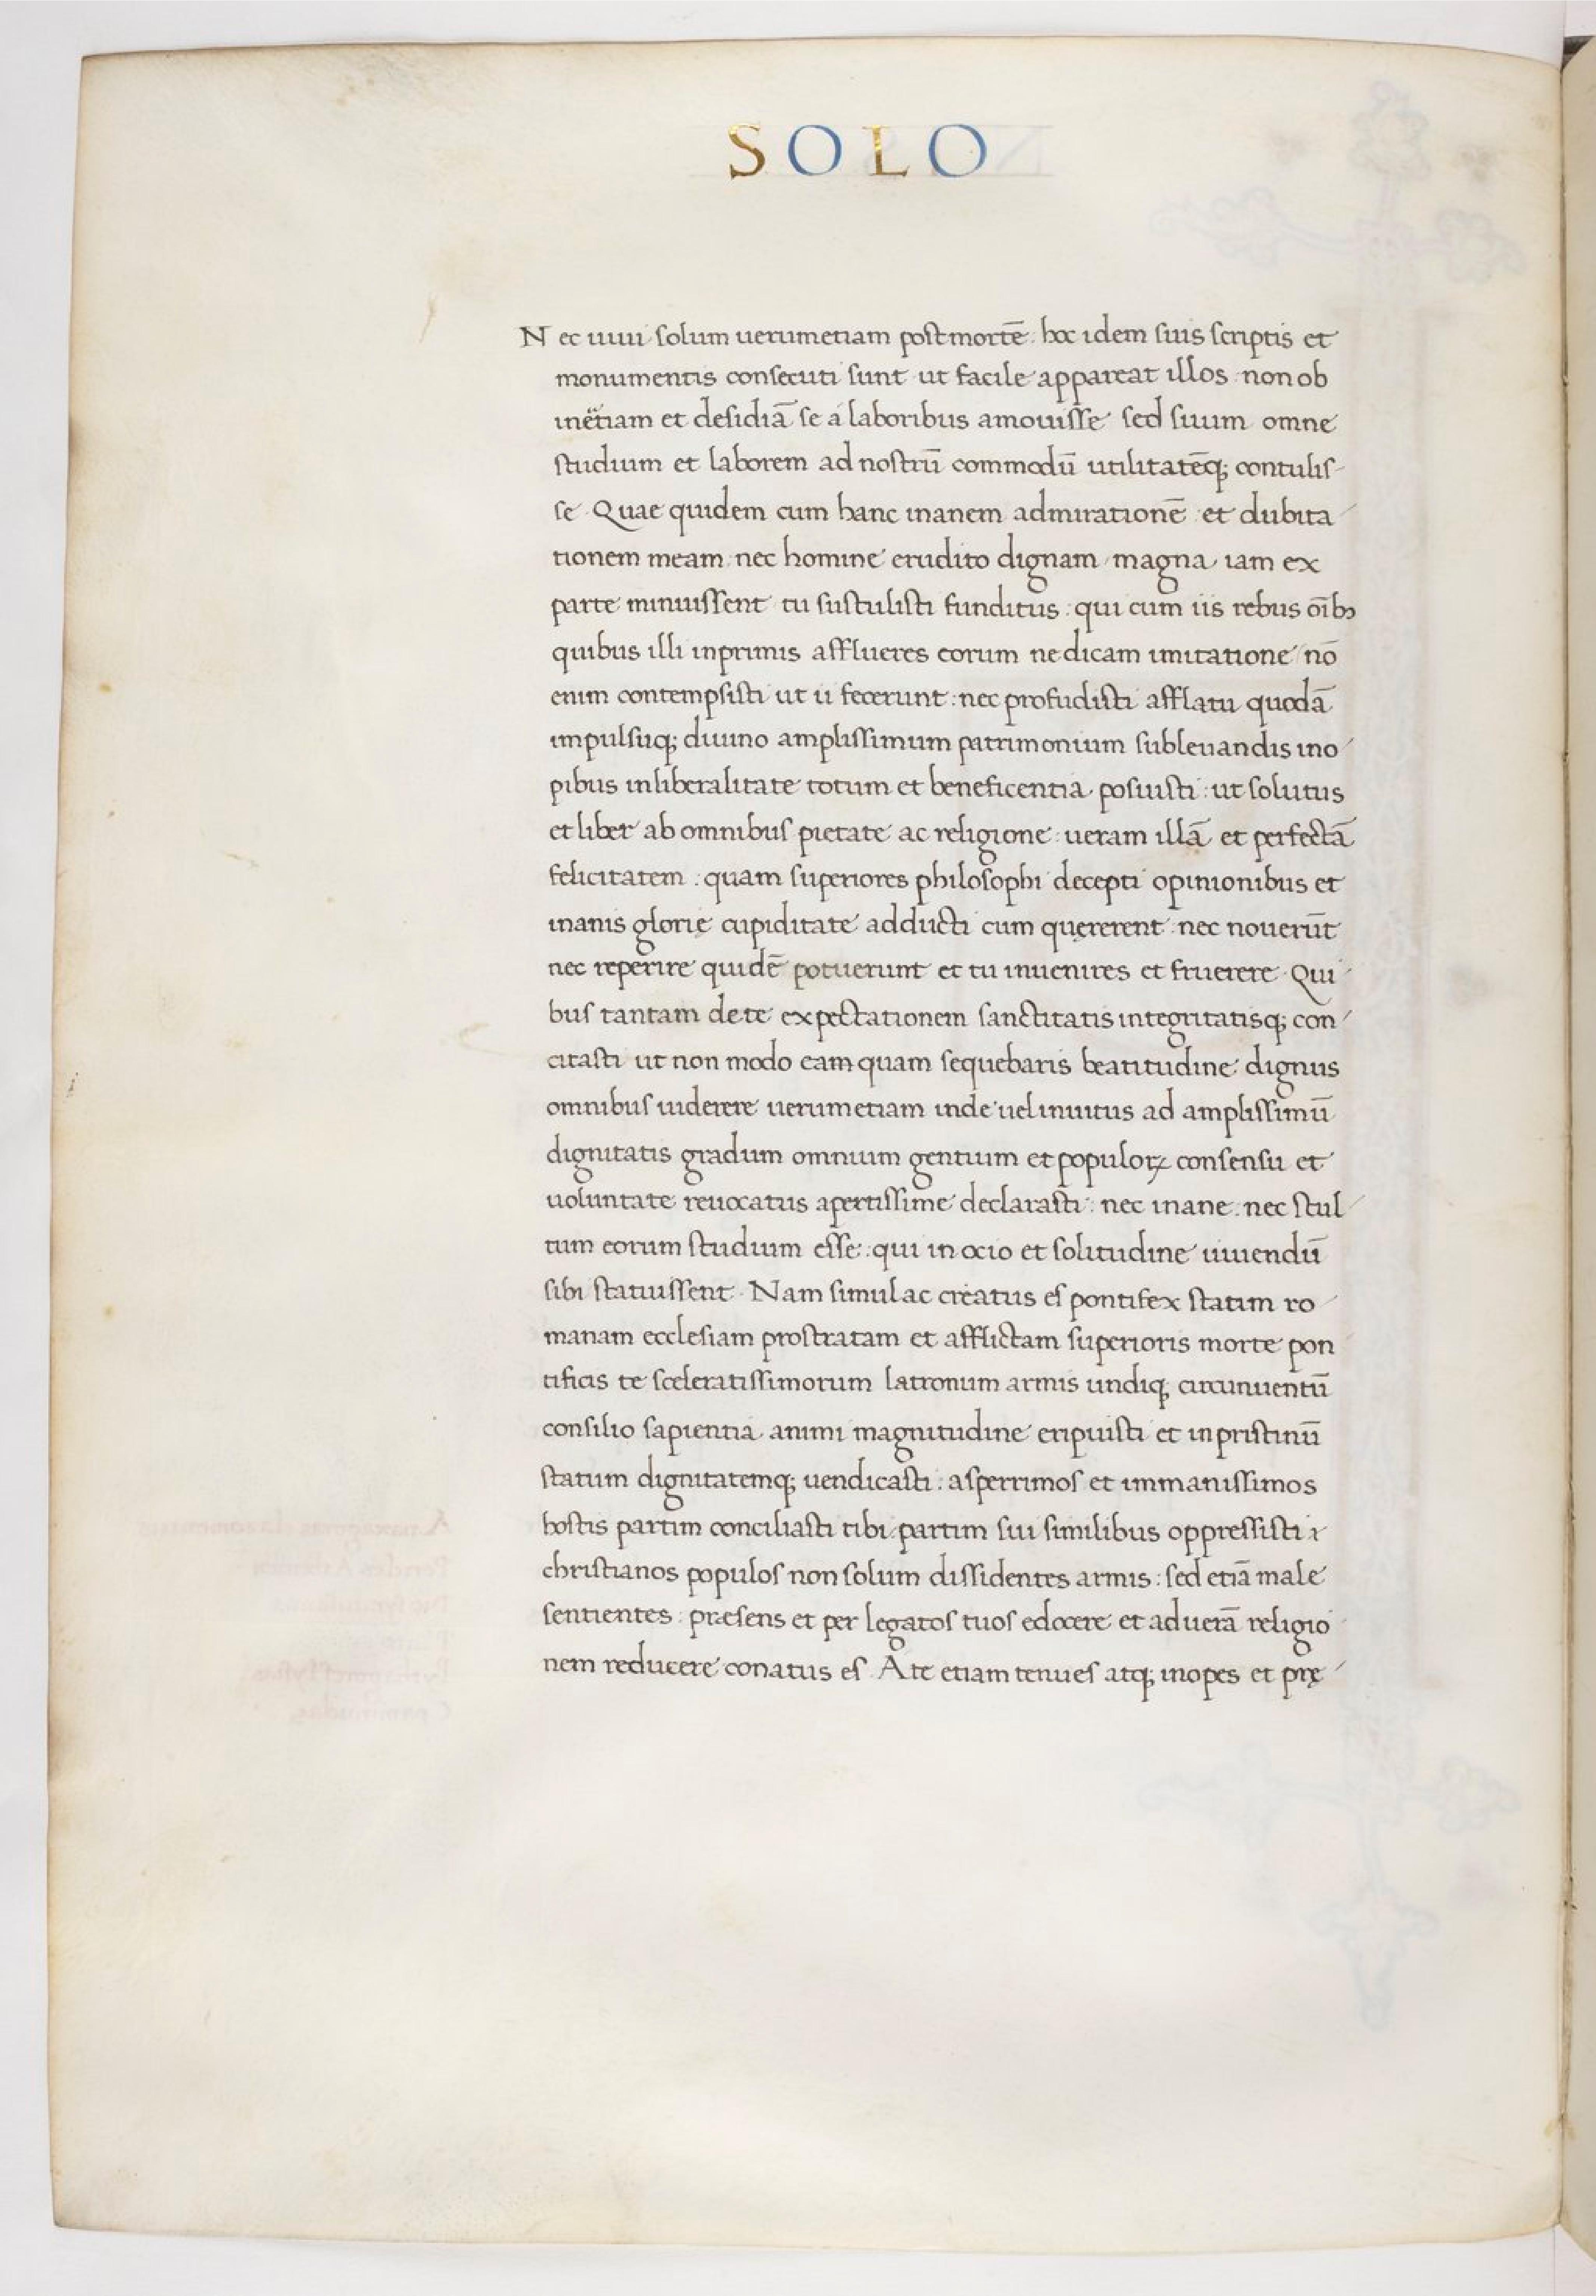 SOLO
Nec uiui solum uerumetiam postmortē: hoc idem suis scriptis et
monumentis consecuti sunt ut facile appareat illos non ob
inetiam et desidiā se á laboribus amouisse sed suum omne
studium et laborem ad nostrū commodū utilitatēq; contulis-
se. Quae quidem cum hanc inanem admirationē et dubita
tionem meam nec homine erudito dignam magna iam ex
parte minuissent tu sustulisti funditus: qui cum iis rebus oībꝫ
quibus illi inprimis afflueres eorum ne dicam imitatione nō
enim contempsisti ut ii fecerunt: nec profudisti afflatu quodā
impulsuq; diuino amplissimum patrimonium subleuandis ino
pibus inliberalitate totum et beneficentia posuisti: ut solutus
et liber ab omnibus pietate ac religione: ueram illā et perfectā
felicitatem: quam superiores philosophi decepti opinionibus et
inanis glorię cupiditate adducti cum quęrerent nec nouerūt
nec reperire quidē potuerunt et tu inuenires et fruerere. Qui
bus tantam de te expectationem sanctitatis integritatisq; con
citasti ut non modo eam quam sequebaris beatitudine dignus
omnibus uiderere uerumetiam inde uel inuitus ad amplissimū
dignitatis gradum omnium gentium et populoꝝ consensu et
uoluntate reuocatus apertissime declarasti: nec inane: nec stul
tum eorum studium esse: qui in ocio et solitudine uiuendū
sibi statuissent. Nam simul ac creatus es pontifex statim ro
manam ecclesiam prostratam et afflictam superioris morte pon
tificis te sceleratissimorum latronum armis undiq; circunuentū
consilio sapientia animi magnitudine eripuisti et in pristinū
statum dignitatemq; uendicasti: asperrimos et immanissimos
hostis partim conciliasti tibi partim sui similibus oppressisti
christianos populos non solum dissidentes armis: sed etiā male
sentientes: præsens et per legatos tuos edocere et ad uerā religio
nem reducere conatus es. A te etiam tenues atq; inopes et prę